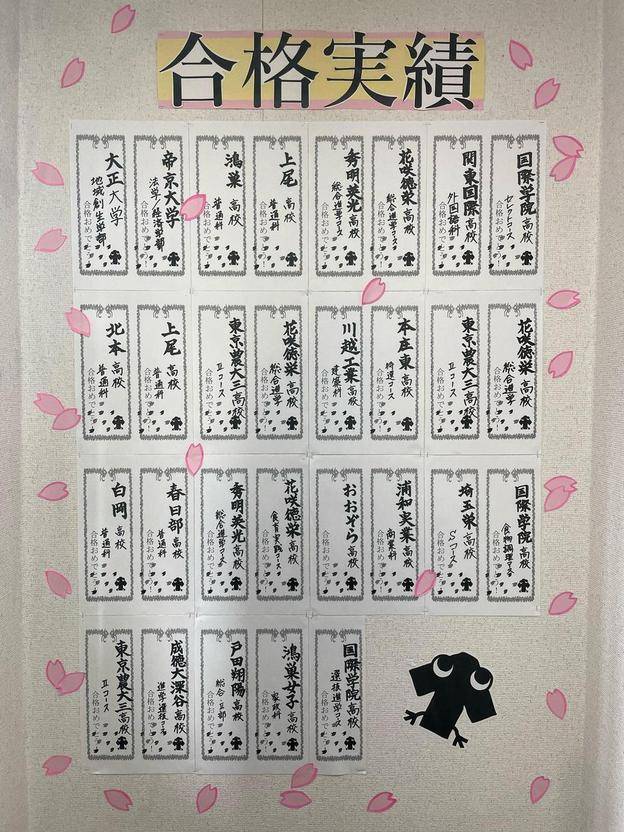 合格実績
国際学院高校
セレクトコース
合格おめでとう
関東国際高校
外国語科
合格おめでとう
花咲徳栄高校
総合進学コース
合格おめでとう
秀明英光高校
総合進学コース
合格おめでとう
上尾高校
普通科
合格おめでとう
鴻巣高校
普通科
合格おめでとう
帝京大学
法学/経済学部
合格おめでとう
大正大学
地域創生学部
合格おめでとう
花咲徳栄高校
総合進学
合格おめでとう
東京農大三高校
Ⅱコース
合格おめでとう
本庄東高校
特進コース
合格おめでとう
川越工業高校
建築科
合格おめでとう
花咲徳栄高校
総合進学
合格おめでとう
東京農大三高校
Ⅱコース
合格おめでとう
上尾高校
普通科
合格おめでとう
北本高校
普通科
合格おめでとう
国際学院高校
食物調理コース
合格おめでとう
埼玉栄高校
Sコース
合格おめでとう
浦和実業高校
商業科
合格おめでとう
おおぞら高校
合格おめでとう
花咲徳栄高校
食育実践コース
合格おめでとう
秀明英光高校
総合進学コース
合格おめでとう
春日部高校
普通科
合格おめでとう
白岡高校
普通科
合格おめでとう
国際学院高校
選抜進学コース
合格おめでとう
鴻巣女子高校
家政科
合格おめでとう
戸田翔陽高校
総合・Ⅲ部
合格おめでとう
成徳大深谷高校
進学選抜コース
合格おめでとう
東京農大三高校
Ⅱコース
合格おめでとう